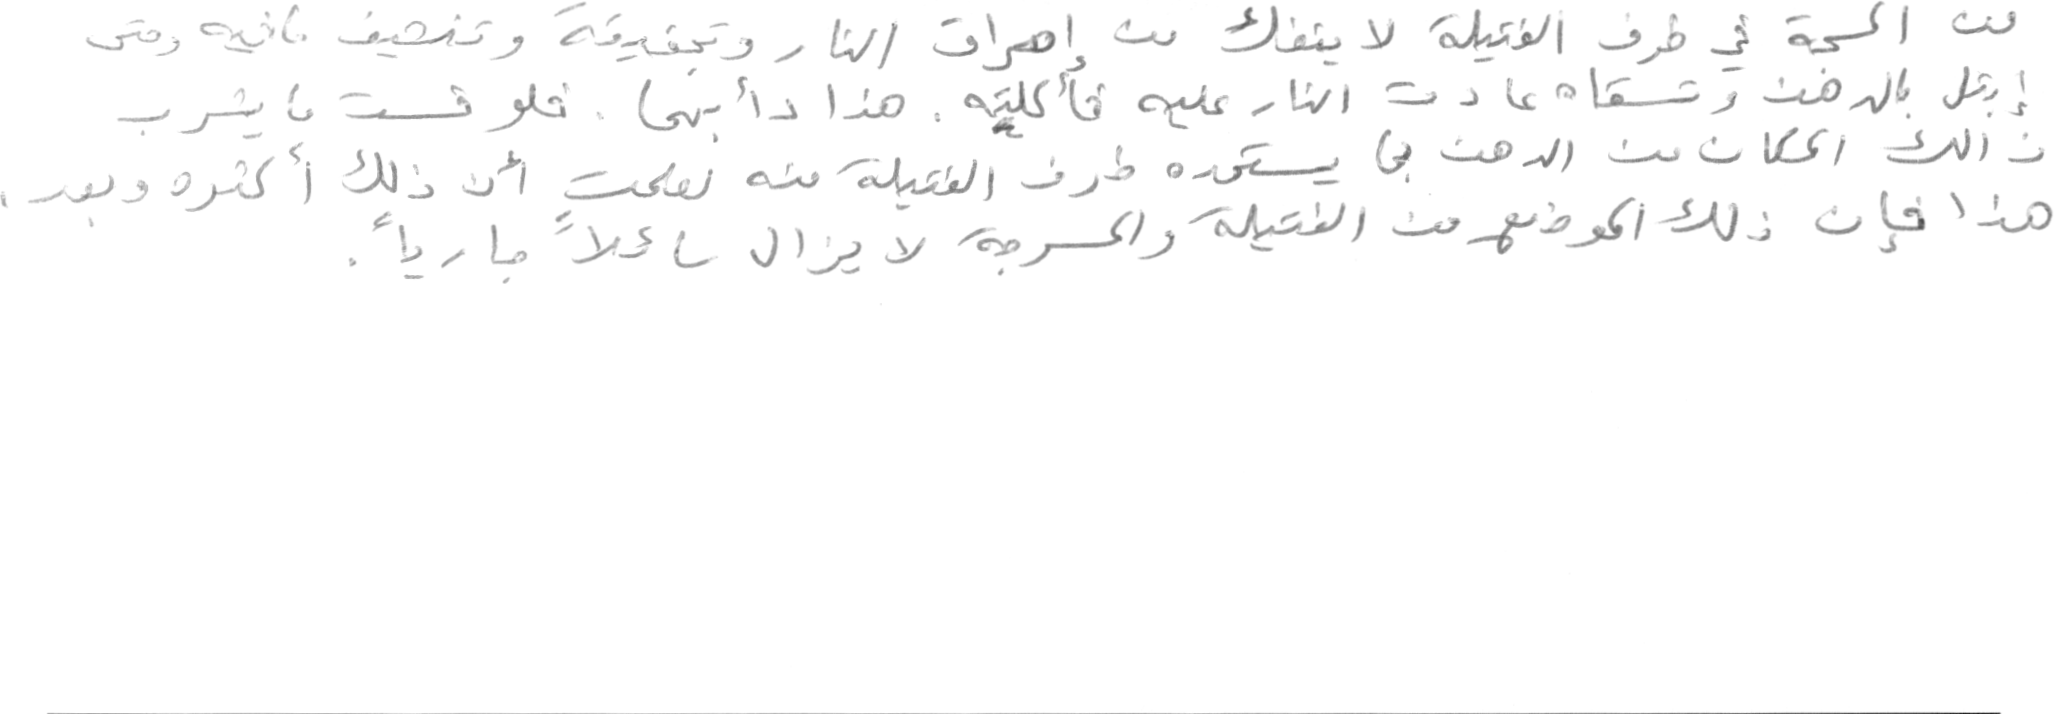 من المسجة في طرف الفتيلة لا ينفك من إحراق النار وتجفيفه وتنشيف ما فيه ومتى
إبتل بالدهن وتسقاه عادت النار عليه فأكلته . هذا دأبهما . فلو قست ما يشرب
ذالك المكان من الدهن بما يستمده طرف الفتيلة منه لعلمت أن ذلك أكثره وبعد .
هذا فإن ذلك الموضع من الفتيلة والمسرجة لا يزال سائلاً جارياً .